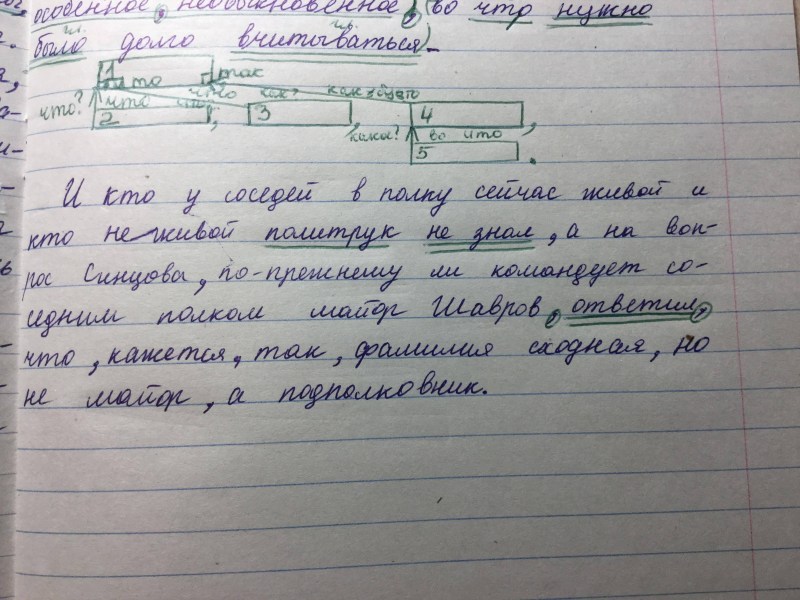 особенное, необыкновенное, (во что нужно
гл. гл.
было долго вчитываться).
1 так
что
что? что что как? как будто
2, 3, 4,
какое? во что
5.
И кто у соседей в полку сейчас живой и
кто неживой политрук не знал, а на воп-
рос Синцова, по-прежнему ли командует со-
едним полком майор Шавров, ответил,
что, кажется, так, фамилия сходная, но
не майор, а подполковник.